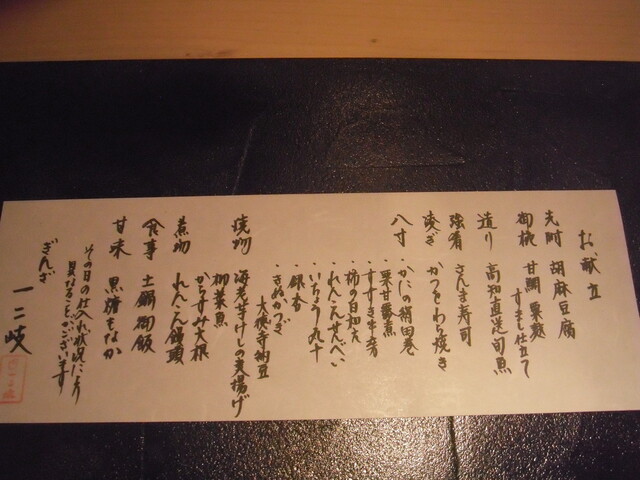 お献立
先附 胡麻豆腐
御椀 甘鯛 粟麩
すまし仕立て
造り 高知直送旬魚
強肴 さんま寿司
凌ぎ かつをわら焼き
八寸 ・かにの絹田巻
・栗甘露煮
・すすき牛蒡
・柿の白和え
・れんこんせんべい
・いちょう丸十
・銀杏
・きぬかつぎ
大徳寺納豆
焼物 海老芋けしの実揚げ
柳葉魚
からすみ大根
煮物 れんこん饅頭
食事 土鍋御飯
甘味 黒糖もなか
その日の仕入れ状況により
異なることがございます
ぎんざ 一二岐